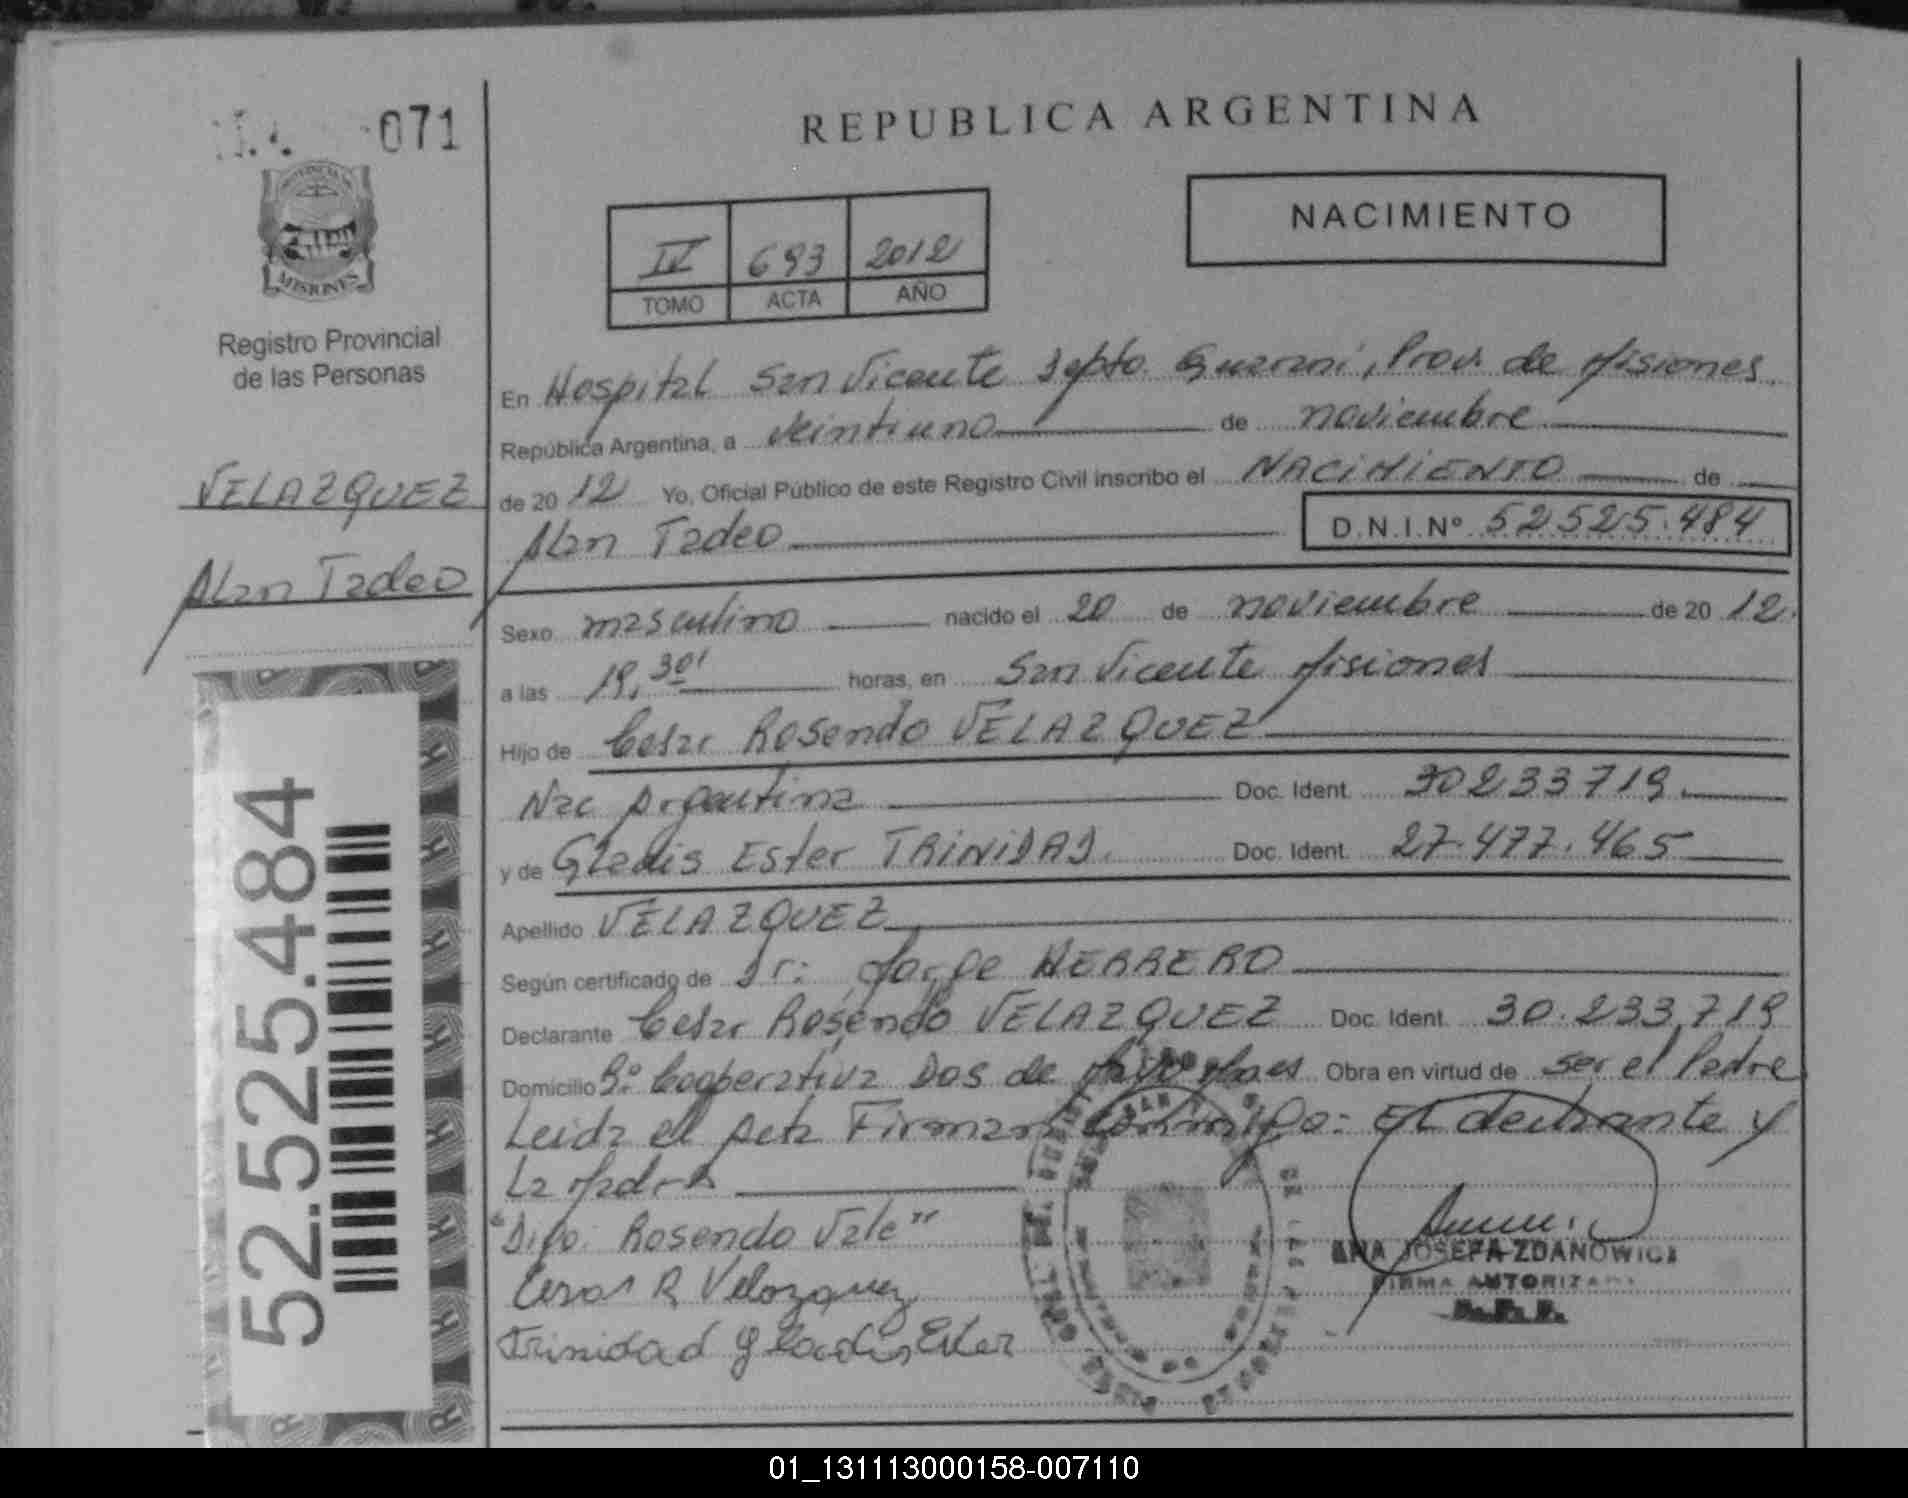 071
REPUBLICA ARGENTINA
NACIMIENTO
IV 693 2012
TOMO ACTA AÑO
MISIONES
Registro Provincial
de las Personas
VELAZQUEZ
Alan Tadeo
52.525.484
En Hospital San Vicente Depto. Guarani, Prov. de Misiones
República Argentina, a veintiuno de noviembre
de 2012 Yo, Oficial Público de este Registro Civil inscribo el NACIMIENTO de
Alan Tadeo D.N.I.Nº 52525.484
Sexo masculino nacido el 20 de noviembre de 2012.
a las 19,30' horas, en San Vicente Misiones
Hijo de Cesar Rosendo VELAZQUEZ
Nac Argentina Doc. Ident. 30233719
y de Gladis Ester TRINIDAD. Doc. Ident. 27.477.465
Apellido VELAZQUEZ
Según certificado de Dr: Jorge HERRERO
Declarante Cesar Rosendo VELAZQUEZ Doc. Ident. 30.233.719
Domicilio Bº Cooperativa Dos de Mayo Mnes Obra en virtud de ser el Padre
Leida el Acta Firman conmigo: El declarante y
La Madre
"Digo: Rosendo Vale"
Cesar R Velazquez
Trinidad Gladis Ester
ANA JOSEFA ZDANOWICZ
FIRMA AUTORIZADA
01_131113000158-007110